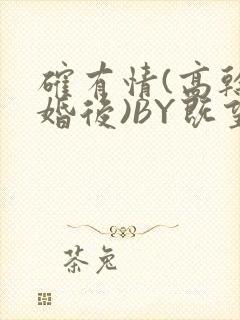 確有情(高幹
婚後)BY既望
茶兔